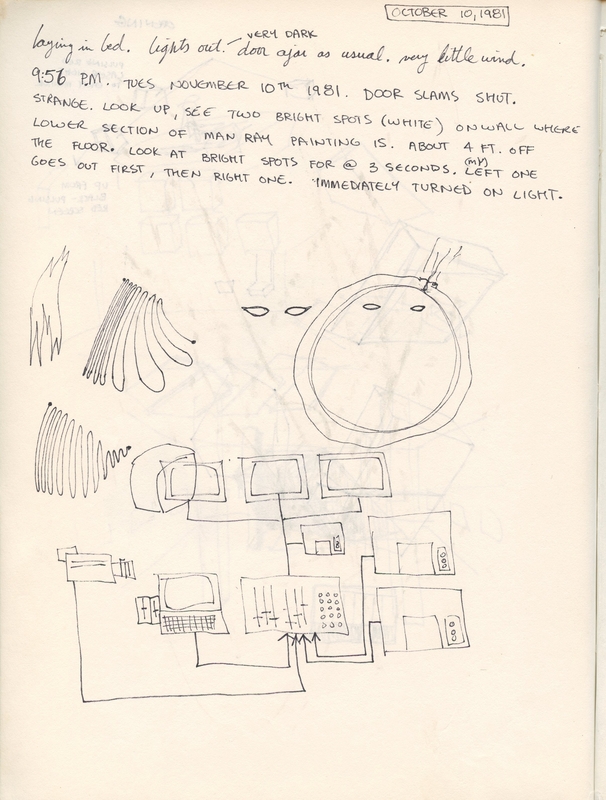 OCTOBER 10, 1981
VERY DARK
laying in bed. lights out. – door ajar as usual. very little wind.
9:56 P.M. TUES NOVEMBER 10TH 1981. DOOR SLAMS SHUT.
STRANGE. LOOK UP, SEE TWO BRIGHT SPOTS (WHITE) ON WALL WHERE
LOWER SECTION OF MAN RAY PAINTING IS. ABOUT 4 FT. OFF
THE FLOOR. LOOK AT BRIGHT SPOTS FOR @ 3 SECONDS. (MY) LEFT ONE
GOES OUT FIRST, THEN RIGHT ONE. IMMEDIATELY TURNED ON LIGHT.